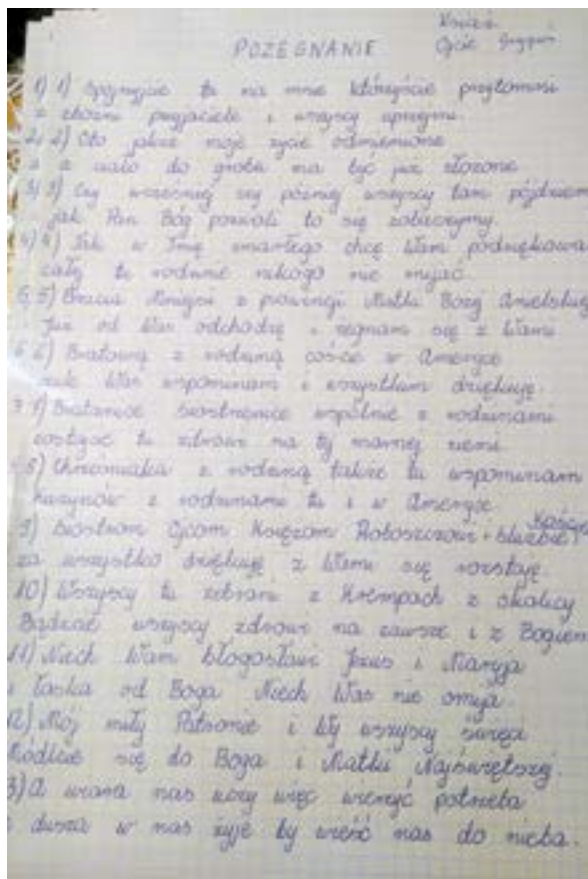 Ksiądz
POŻEGNANIE Ojciec
1) 1) Spojrzyjcie tu na mnie którzyście przytomni
z zbożni przyjaciele i wszyscy uprzejmi.
2, 2) Oto jakże moje życie odmienione
a ciało do grobu ma być już złożone
3) 3) Czy wcześniej czy później wszyscy tam pójdziem
jak Pan Bóg pozwoli to się zobaczymy.
4) 4) Tak w Imię zmarłego chcę Wam podziękować
całą tu rodzinę nikogo nie mijać.
5, 5) Bracia Mniejsi z prowincji Matki Bożej Anielskiej
Już od Was odchodzę i żegnam się z Wami
6 6) Bratową z rodziną coście w Ameryce
mile Was wspominam i wszystkim dziękuję.
7 7) Bratanice siostrzenice wspólnie z rodzinami
zostajcie tu zdrowi na tej marnej ziemi
8) Chrześniaka z rodziną także tu wspominam
kuzynów z rodzinami tu i w Ameryce
9) Siostrom Ojcom Księżom Proboszczowi + służbie Kościel
za wszystko dziękuję z Wami się rozstaję.
10) Wszyscy tu zebrani z Krempach z okolicy
Bądźcie wszyscy zdrowi na zawsze i z Bogiem
11) Niech Wam błogosławi Jezus i Maryja
i łaska od Boga Niech Was nie omija.
12) Mój miły Patronie i Wy wszyscy święci
Módlcie się do Boga i Matki Najświętszej.
3) A wiara nas uczy więc wierzyć potrzeba
dusza w nas żyje by wieść nas do nieba.